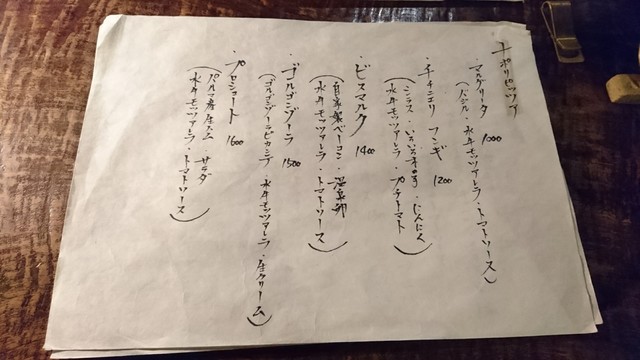 ナポリピッツァ
マルゲリータ 1000
(バジル・水牛モッツァレラ・トマトソース)
・チチニエリ フンギ 1200
(シラス・いろいろキノコ・にんにく
水牛モッツァレラ・プチトマト)
・ビスマルク 1400
(自家製ベーコン・温泉卵
水牛モッツァレラ・トマトソース)
・ゴルゴンゾーラ 1500
(ゴルゴンゾーラピカンテ・水牛モッツァレラ・生クリーム)
・プロシュート 1600
(パルマ産生ハム サラダ
水牛モッツァレラ・トマトソース)